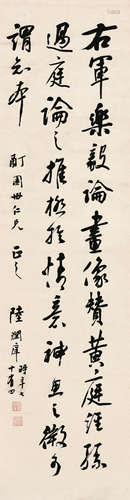 右軍樂毅論畫像贊黃庭經孫
過庭論之推極於情意神思之微可
謂知本
圃世仁兄 正之
陸潤庠時年七
十有四